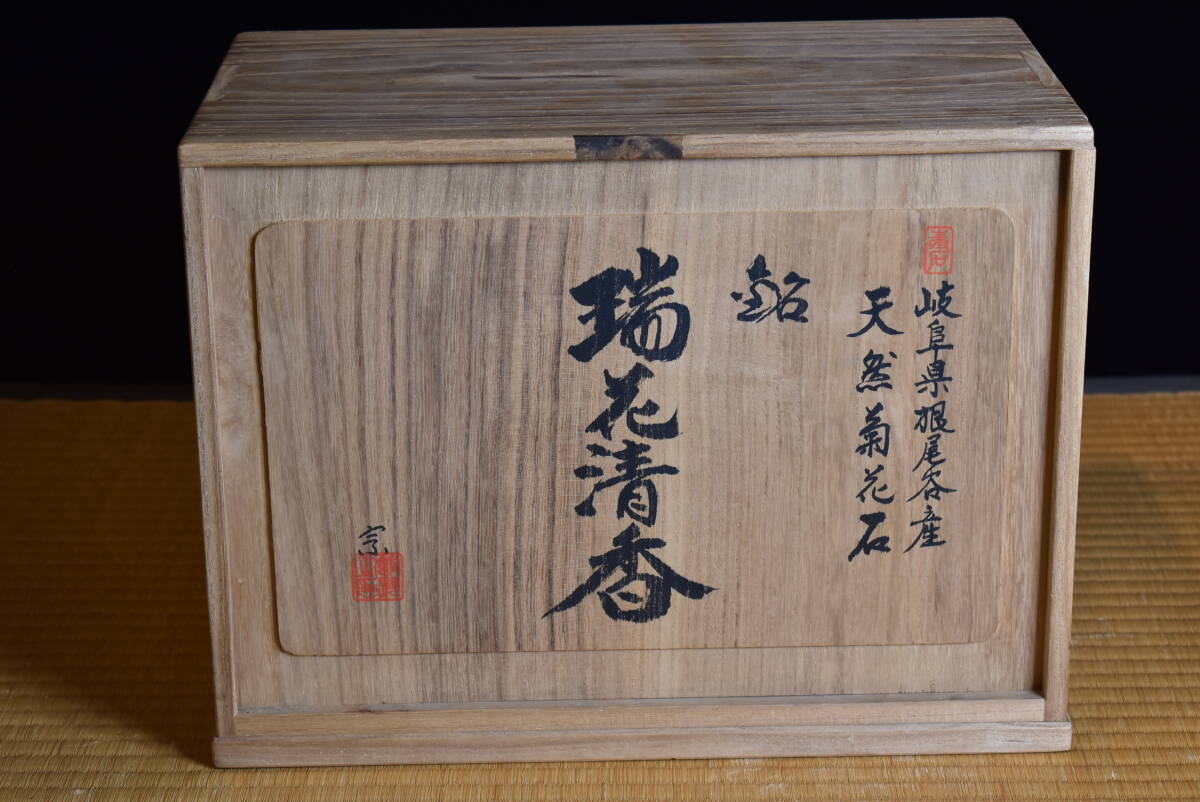 岐阜県根尾谷産
天然菊花石
銘
瑞花清香
宗